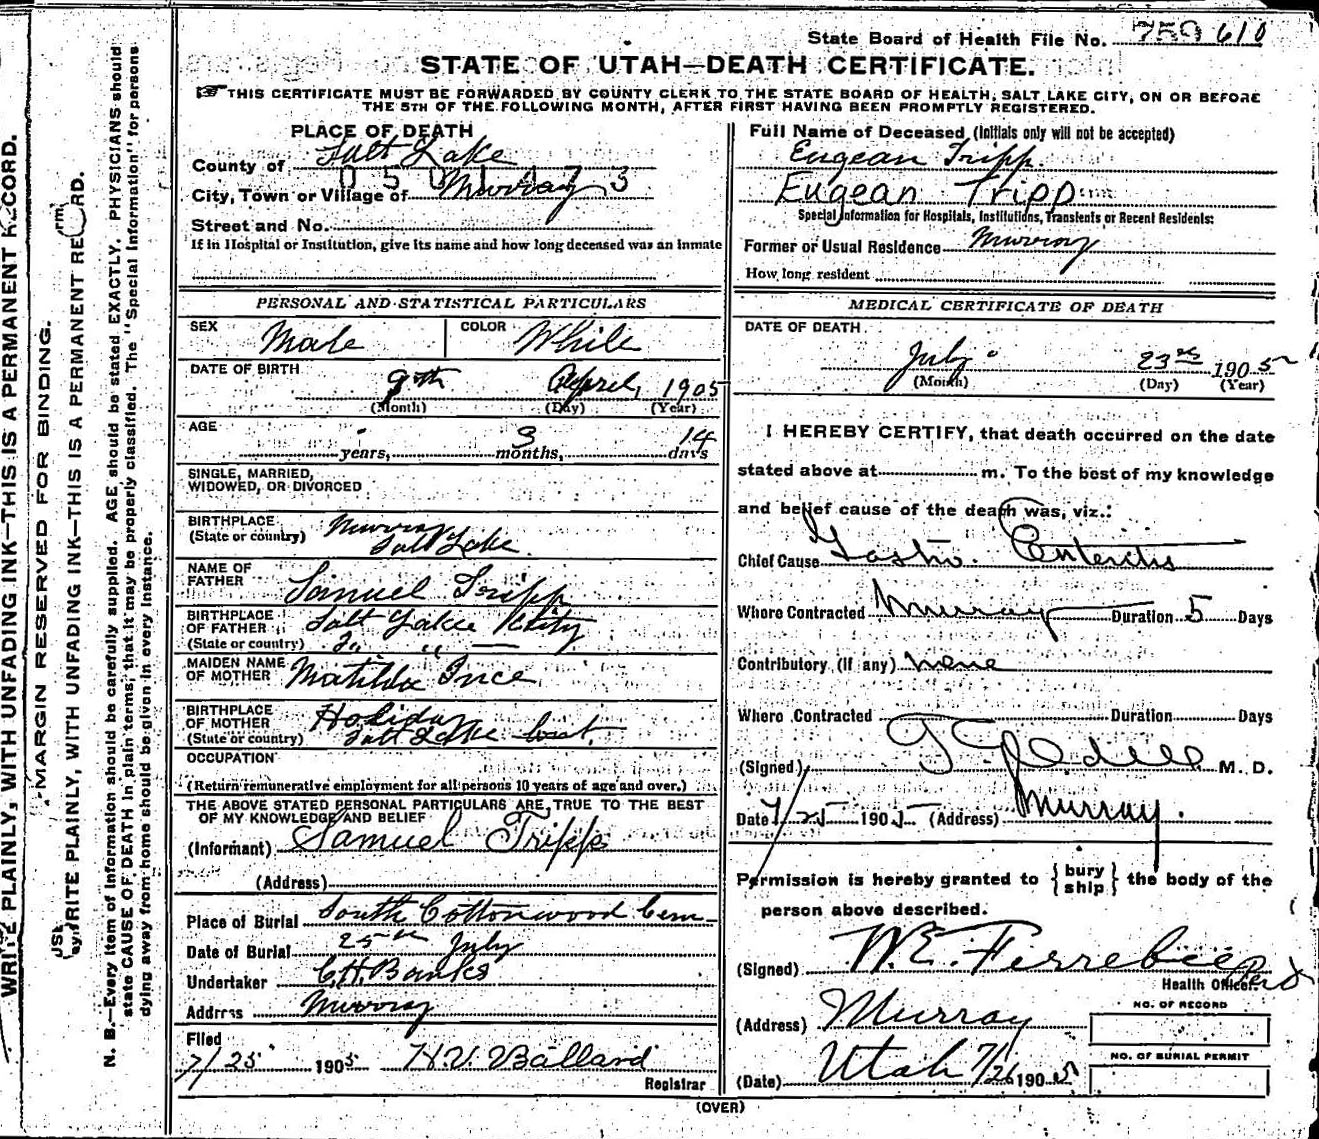 State Board of Health File No. 759 610
STATE OF UTAH—DEATH CERTIFICATE.
THIS CERTIFICATE MUST BE FORWARDED BY COUNTY CLERK TO THE STATE BOARD OF HEALTH, SALT LAKE CITY, ON OR BEFORE
THE 5TH OF THE FOLLOWING MONTH, AFTER FIRST HAVING BEEN PROMPTLY REGISTERED.
PLACE OF DEATH
County of Salt Lake
City, Town or Village of Murray
Street and No.
If in Hospital or Institution, give its name and how long deceased was an inmate
PERSONAL AND STATISTICAL PARTICULARS
SEX Male COLOR White
DATE OF BIRTH
9th April, 1905
(Month) (Day) (Year)
AGE
- years, 3 months, 14 days
SINGLE, MARRIED,
WIDOWED, OR DIVORCED
BIRTHPLACE Murray
(State or country) Salt Lake.
NAME OF
FATHER Samuel Tripp
BIRTHPLACE
OF FATHER Salt Lake City
(State or country)
MAIDEN NAME
OF MOTHER Matilda Ince
BIRTHPLACE
OF MOTHER Holiday
(State or country) Salt Lake
OCCUPATION
(Return remunerative employment for all persons 10 years of age and over.)
THE ABOVE STATED PERSONAL PARTICULARS ARE TRUE TO THE BEST
OF MY KNOWLEDGE AND BELIEF
(Informant) Samuel Tripp
(Address)
Place of Burial South Cottonwood Cem
Date of Burial 25th July
Undertaker C.H. Banks
Address Murray
Filed
7/25 1905 H.V. Ballard
Registrar
Full Name of Deceased (Initials only will not be accepted)
Eugean Tripp.
Eugean Tripp
Special Information for Hospitals, Institutions, Transients or Recent Residents:
Former or Usual Residence Murray
How long resident
MEDICAL CERTIFICATE OF DEATH
DATE OF DEATH
July 23rd 1905
(Month) (Day) (Year)
I HEREBY CERTIFY, that death occurred on the date
stated above at m. To the best of my knowledge
and belief cause of the death was, viz.:
Chief Cause Gastro. Enteritis
Where Contracted Murray Duration 5 Days
Contributory (if any) none
Where Contracted Duration Days
(Signed) M. D.
Date 7/25 1905 (Address) Murray.
Permission is hereby granted to { bury ship } the body of the
person above described.
(Signed) W.E. Ferrebee
Health Officer.
(Address) Murray
Utah
(Date) 7/26 1905
NO. OF RECORD
NO. OF BURIAL PERMIT
(OVER)
WRITE PLAINLY, WITH UNFADING INK—THIS IS A PERMANENT RECORD.
MARGIN RESERVED FOR BINDING.
WRITE PLAINLY, WITH UNFADING INK—THIS IS A PERMANENT RECORD.
N. B.—Every item of information should be carefully supplied. AGE should be stated EXACTLY. PHYSICIANS should
state CAUSE OF DEATH in plain terms, that it may be properly classified. The "Special Information" for persons
dying away from home should be given in every instance.